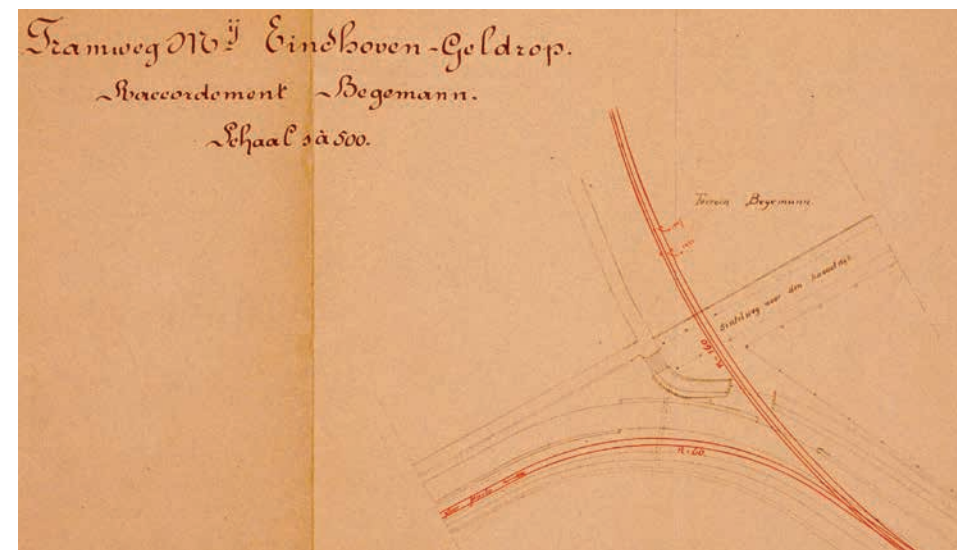 Tramweg Mij Eindhoven-Geldrop.
Raccordement Begemann.
Schaal 1 à 500.
Terrein Begemann
Grintweg naar den
R=160
R=60